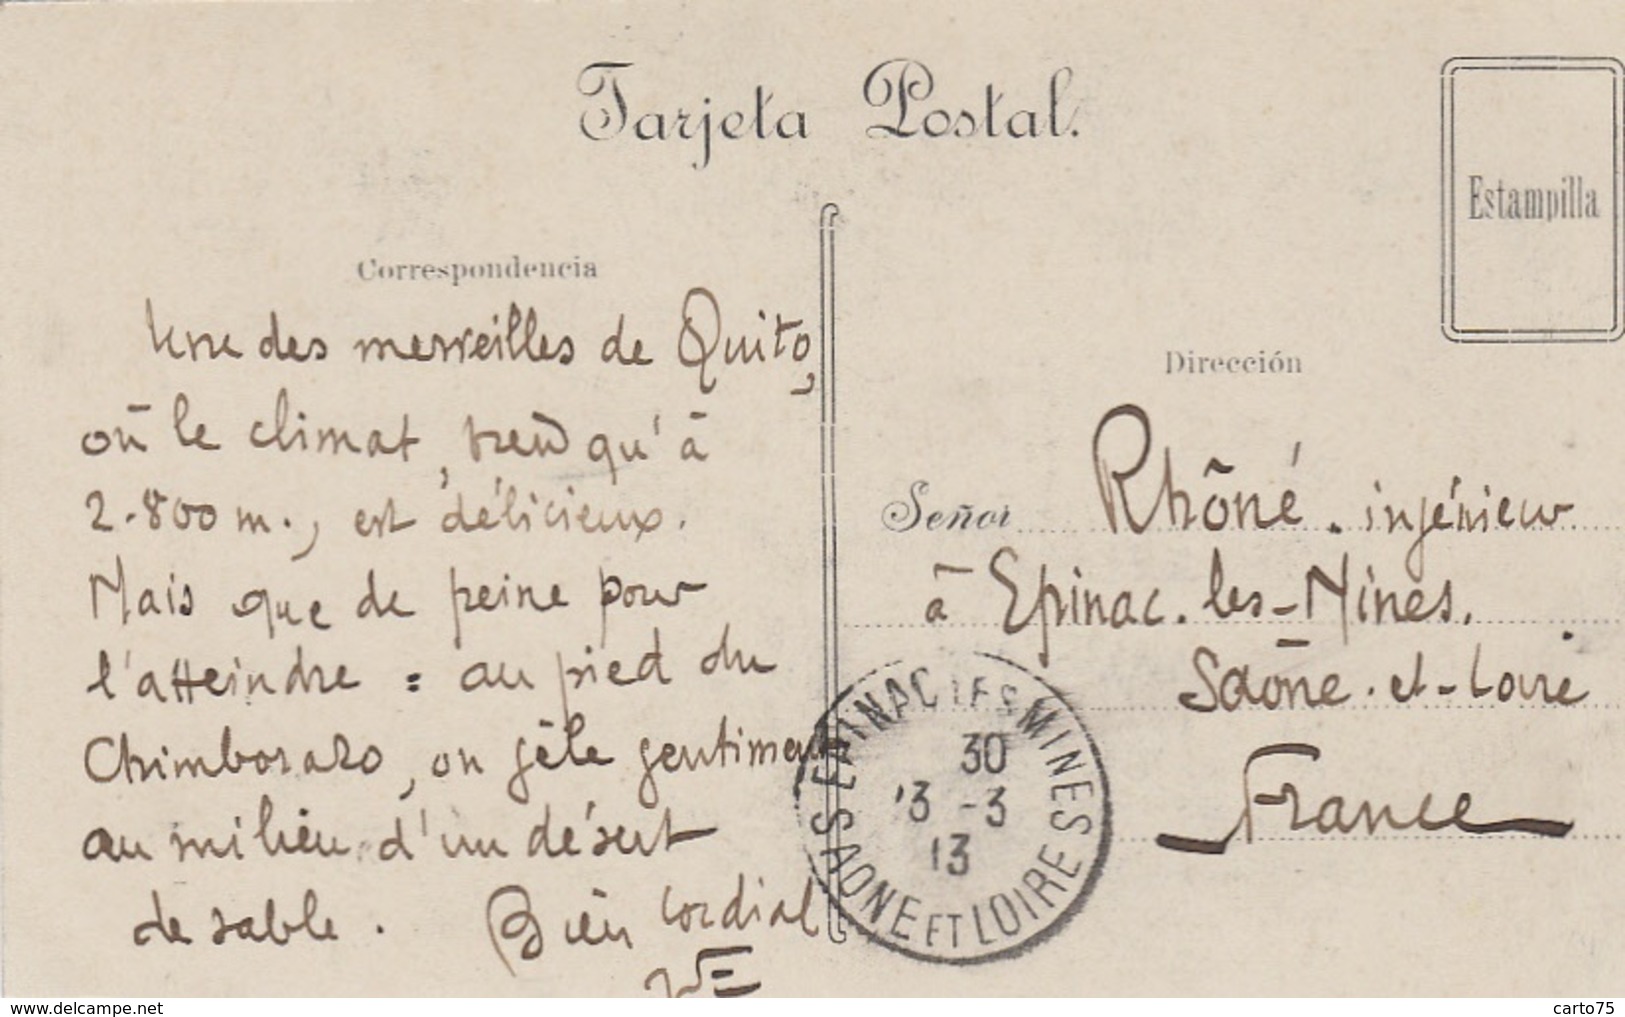 Tarjeta Postal.
Estampilla
Correspondencia
Une des merveilles de Quito,
où le climat, bien qu'à
2.800 m., est délicieux.
Mais que de peine pour
l'atteindre : au pied du
Chimborazo, on gèle gentiment
au milieu d'un désert
de sable. Bien cordial
Dirección
Señor Rhôné. ingénieur
à Epinac-les-Mines.
Saône-et-Loire
France
EPINAC LES MINES
30
13 -3
13
SAONE ET LOIRE
www.delcampe.net
carto75